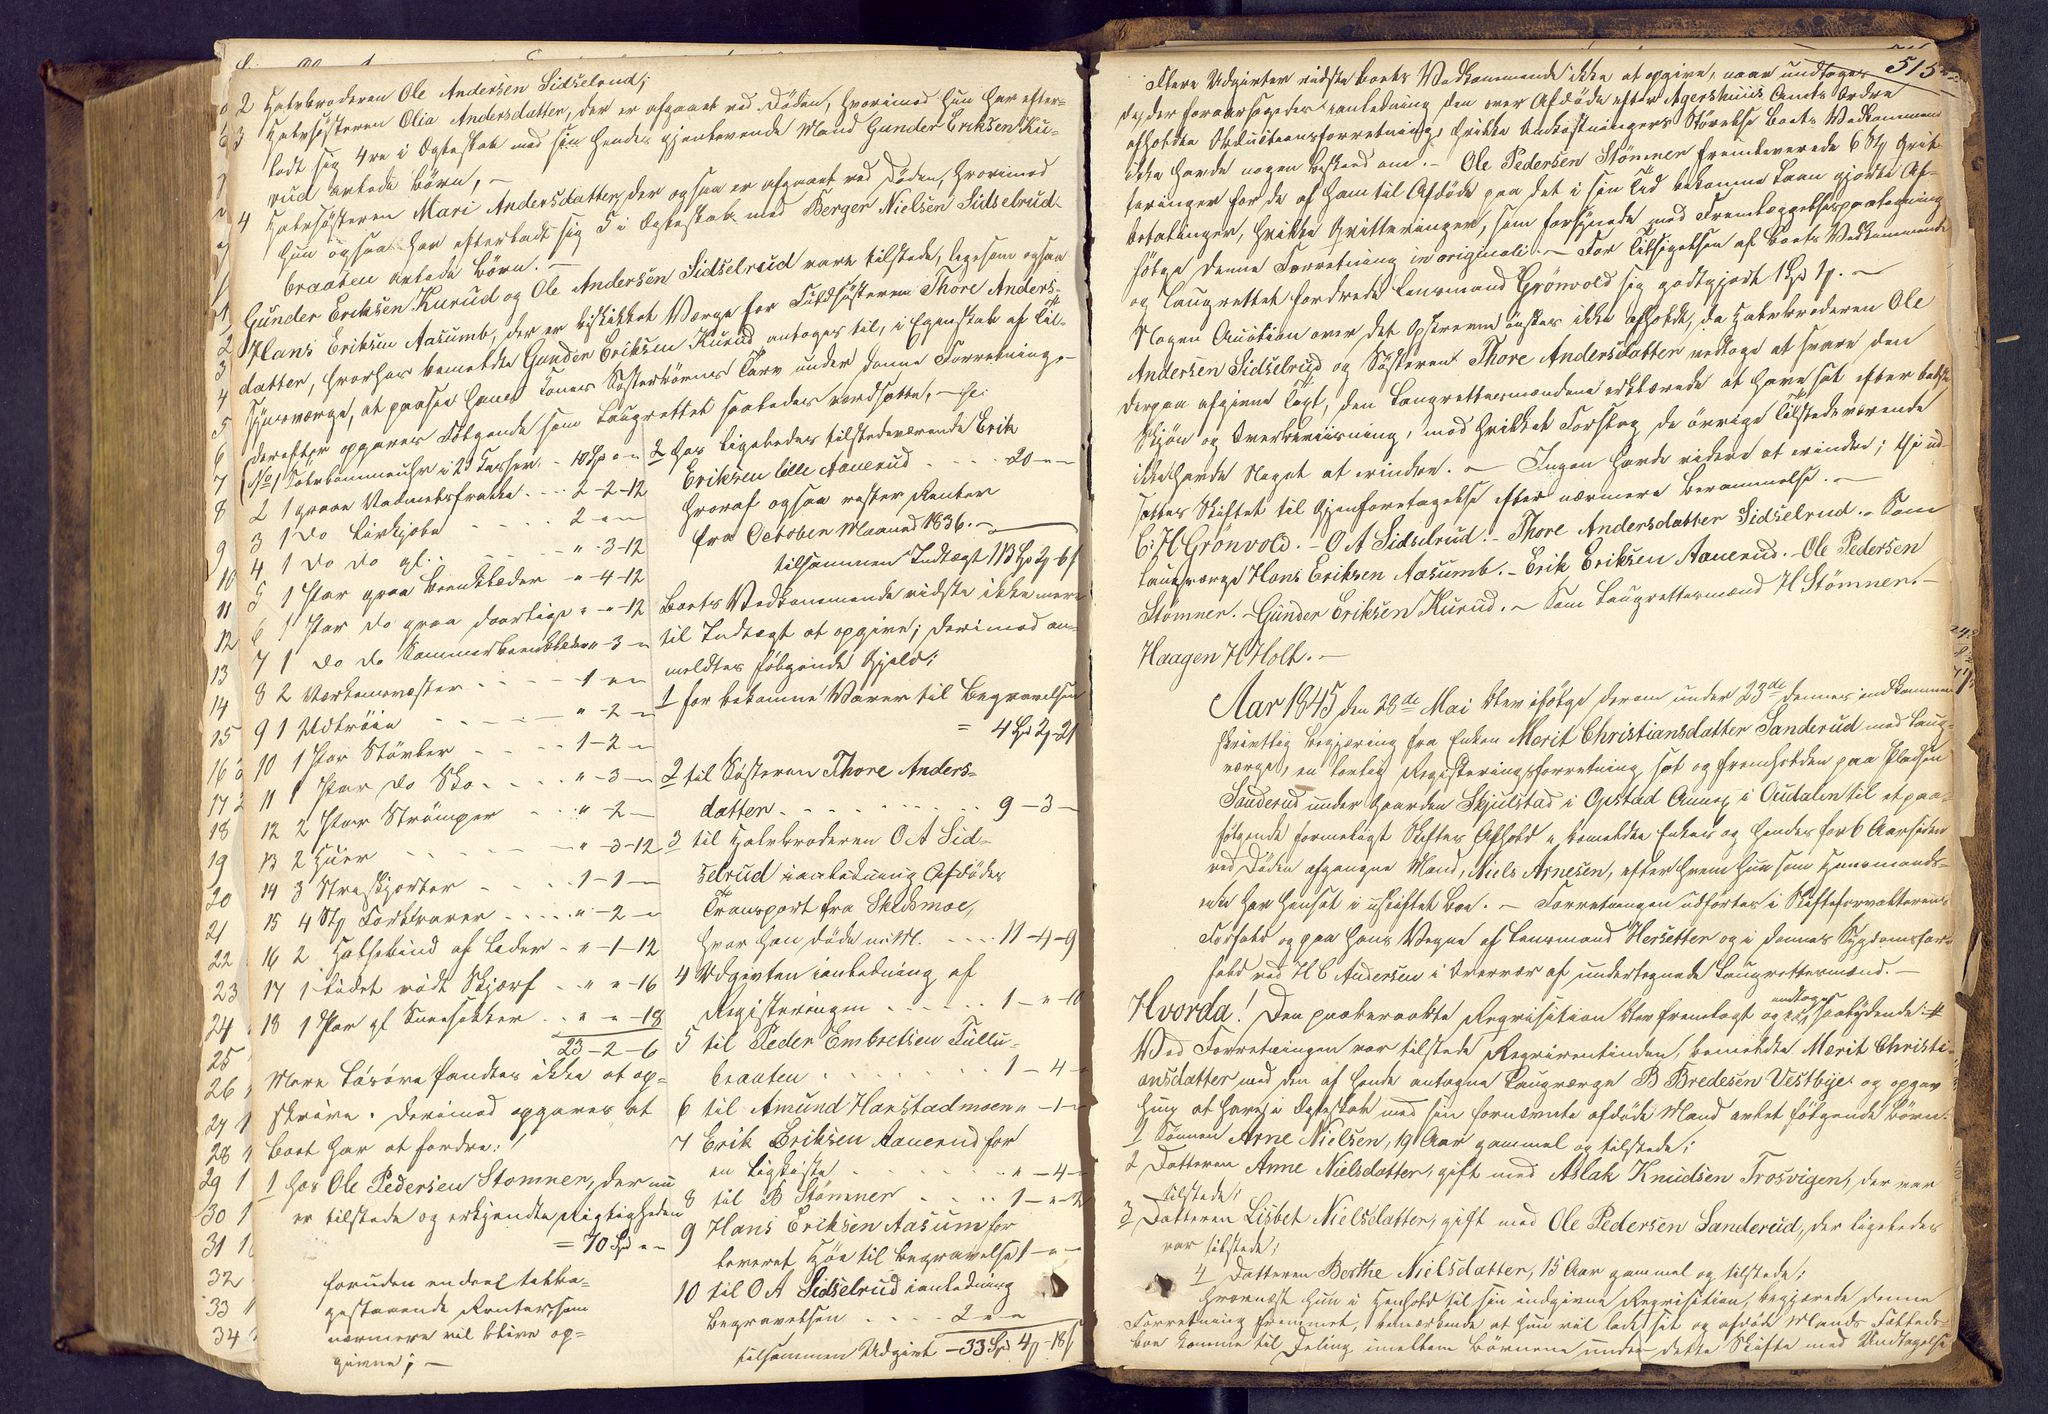 2 Halvbroderen Ole Andersen Sidselrud;
3 Halvsösteren Olia Andersdatter, der er afgaaet ved Döden, hvorimod hun har efter-
ladt sig 4re i Ægteskab med sin hendes gjenlevende Mand Gunder Eriksen Ku-
rud avlede Börn, —
4 Halvsösteren Mari Andersdatter, der ogsaa er afgaaet ved Döden, hvorimod
hun ogsaa har efterladt sig 5 i Ægteskab med Berger Nielsen Sidselrud-
braaten avlede Börn. —
Gunder Eriksen Kurud og Ole Andersen Sidselrud vare tilstede, ligesom ogsaa
Hans Eriksen Aasumb, der er beskikket Værge for Fuldsösteren Thore Anders-
datter, hvorhos bemeldte Gunder Eriksen Kurud antoges til, i Egenskab af Til-
synsværge, at paasee hans Sösterbörns Tarv under denne Forretning. —
derefter opgaves Fölgende som Laugrettet saaledes værdsatte, —
No 1 Sölvlommeuhr i 2 Kasser - 10 Sp " -
2 1 graae Vadmelsfrakke 2-2-12
3 1 Do Livkjole 2 - " -
4 1 Do Do gl. " -3-12
5 1 Par graa Beenklæder " -4-12
6 1 Par Do graa daarlige " - " -12
7 1 Do Do Sommerbeenklæder " -3 -
8 2 Værkensvæster 1 - " -
9 1 Udtröie " -2 -
10 1 Par Stövler 1-2 -
11 1 Par Do Sko " -3 -
12 2 Par Strömper " -2 -
13 2 Huer " -3-12
14 3 Strieskjorter 1-1 -
15 4 Stk Forklæder " -2 -
16 2 Halsebind af Læder " -1-12
17 1 lidet rödt Skjærf " - " -16
18 1 Par gl. Sneesokker " - " -18
23-2-6
Mere Lösöre fandtes ikke at op-
skrive. Derimod opgaves at
Boet har at fordre:
1 hos Ole Pedersen Stomner, der nu
er tilstede og erkjendte Rigtigheden
= 70 Sp " -
foruden en deel tilba-
gestaaende Renter, som
nærmere vil blive op-
givne; —
2 hos ligeledes tilstedeværende Erik
Eriksen lille Aanerud 20 - -
hvoraf ogsaa rester Renter
fra October Maaned 1836. —
tilsammen Indtægt 113 Sp 2 - 6 s
Boets Vedkommende vidste ikke mere
til Indtægt at opgive; derimod an-
meldtes fölgende Gjeld:
1 for bekomne Varer til Begravelsen
= 4 Sp 2 - 21
2 til Sösteren Thore Anders-
datter 9 - 3 -
3 til Halvbroderen O A Sid-
selrud i anledning Afdödes
Transport fra Skedsmoe,
hvor han döde 11-4-9
4 Udgivten i anledning af
Registeringen 1 - " - 10
5 til Peder Embretsen Tullu-
braaten 1-4 -
6 til Amund Harstadmoen " -1 -
7 Erik Eriksen Aanerud for
en Ligkiste " -4 -
8 til B Stömner 1 - " -2
9 Hans Eriksen Aasum for
leveret Höe til Begravelse 1 - " -
10 til O A Sidselrud i anledning
Begravelsen 2 - " -
tilsammen Udgivt - 33 Sp 4 - 18 s
515
Flere Udgivter vidste Boets Vedkommende ikke at opgive, naar undtages
de, der foraarsagedes i anledning den over Afdöde efter Agershuus Amts Ordre
afholdte Obductionsforretning, hvilke Omkostningers Störelse Boets Vedkommende
ikke havde nogen Besked om. — Ole Pedersen Stömner fremleverede 6 Stk Qvit-
teringer for de af ham til Afdöde paa det i sin Tid bekomne Laan gjorte Af-
betalinger, hvilke Qvitteringer, som forsynede med Fremlæggelsespaategning
fölge denne Forretning in originali. — For Tilsigelsen af Boets Vedkommende
og Laugrettet fordrede Lensmand Grönvold sig godtgjort 1 Sp 1 . —
Nogen Auction over det Opskrevne önskes ikke afholdt, da Halvbroderen Ole
Andersen Sidselrud og Sösteren Thore Andersdatter vedtoge at svare den
derpaa afgivne Taxt, den Laugrettesmændene erklærede at have sat efter bedste
Skjön og Overbeviisning, mod hvilket Forslag de övrige Tilstedeværende
ikke havde Noget at erindre. — Ingen havde videre at erindre; thi ud-
sattes Skiftet til Gjenforetagelse efter nærmere Berammelse. —
C: H Grönvold. — O A Sidselrud. — Thore Andersdatter Sidselrud. — Som
Laugværge Hans Eriksen Aasumb. — Erik Eriksen Aanerud. — Ole Pedersen
Stömner. — Gunder Eriksen Kurud. — Som Laugrettesmænd H Stömner. —
Haagen H Holt. —
Aar 1845 den 28de Mai blev ifölge derom under 23de dennes indkommen
skrivtlig Begjæring fra Enken Merit Christiansdatter Sanderud med Laug-
værge, en lovlig Registeringsforretning sat og fremholden paa Pladsen
Sanderud under Gaarden Skjulstad i Opstad Annex i Oudalen til et paa-
fölgende formeligt Skiftes Afhold i bemeldte Enkes og hendes for 6 Aar siden
ved Döden afgangne Mand, Niels Arnesen, efter hvem hun som Huusmands-
enke har hensat i uskiftet Boe. — Forretningen udförtes i Skifteforvalterens
Forfald og paa hans Vegne af Lensmand Hersetter og i dennes Sygdomsfor-
fald ved H C Andersen i Overvær af undertegnede Laugrettesmænd. —
Hvorda! Den paaberaabte Reqvisition blev fremlagt og indtages saalydende: #
Ved Forretningen var tilstede Reqvirentinden, bemeldte Merit Christi-
ansdatter med den af hende antagne Laugværge B Bredesen Vestbye, og opgav
hun at have i Ægteskab med sin fornævnte afdöde Mand avlet fölgende Börn:
1 Sönnen Arne Nielsen, 19 Aar gammel og tilstede;
2 Datteren Anne Nielsdatter, gift med Aslak Knudsen Trosvigen, der var
tilstede;
3 Datteren Lisbet Nielsdatter, gift med Ole Pedersen Sanderud, der ligeledes
var tilstede;
4 Datteren Berthe Nielsdatter, 15 Aar gammel og tilstede;
hvornæst hun i Henhold til sin indgivne Reqvisition, begjærede denne
Forretning fremmet, bemærkende at hun vil lade sit og afdöde Mands Fælleds-
boe komme til Deling imellem Börnene under dette Skifte med Undtagelse